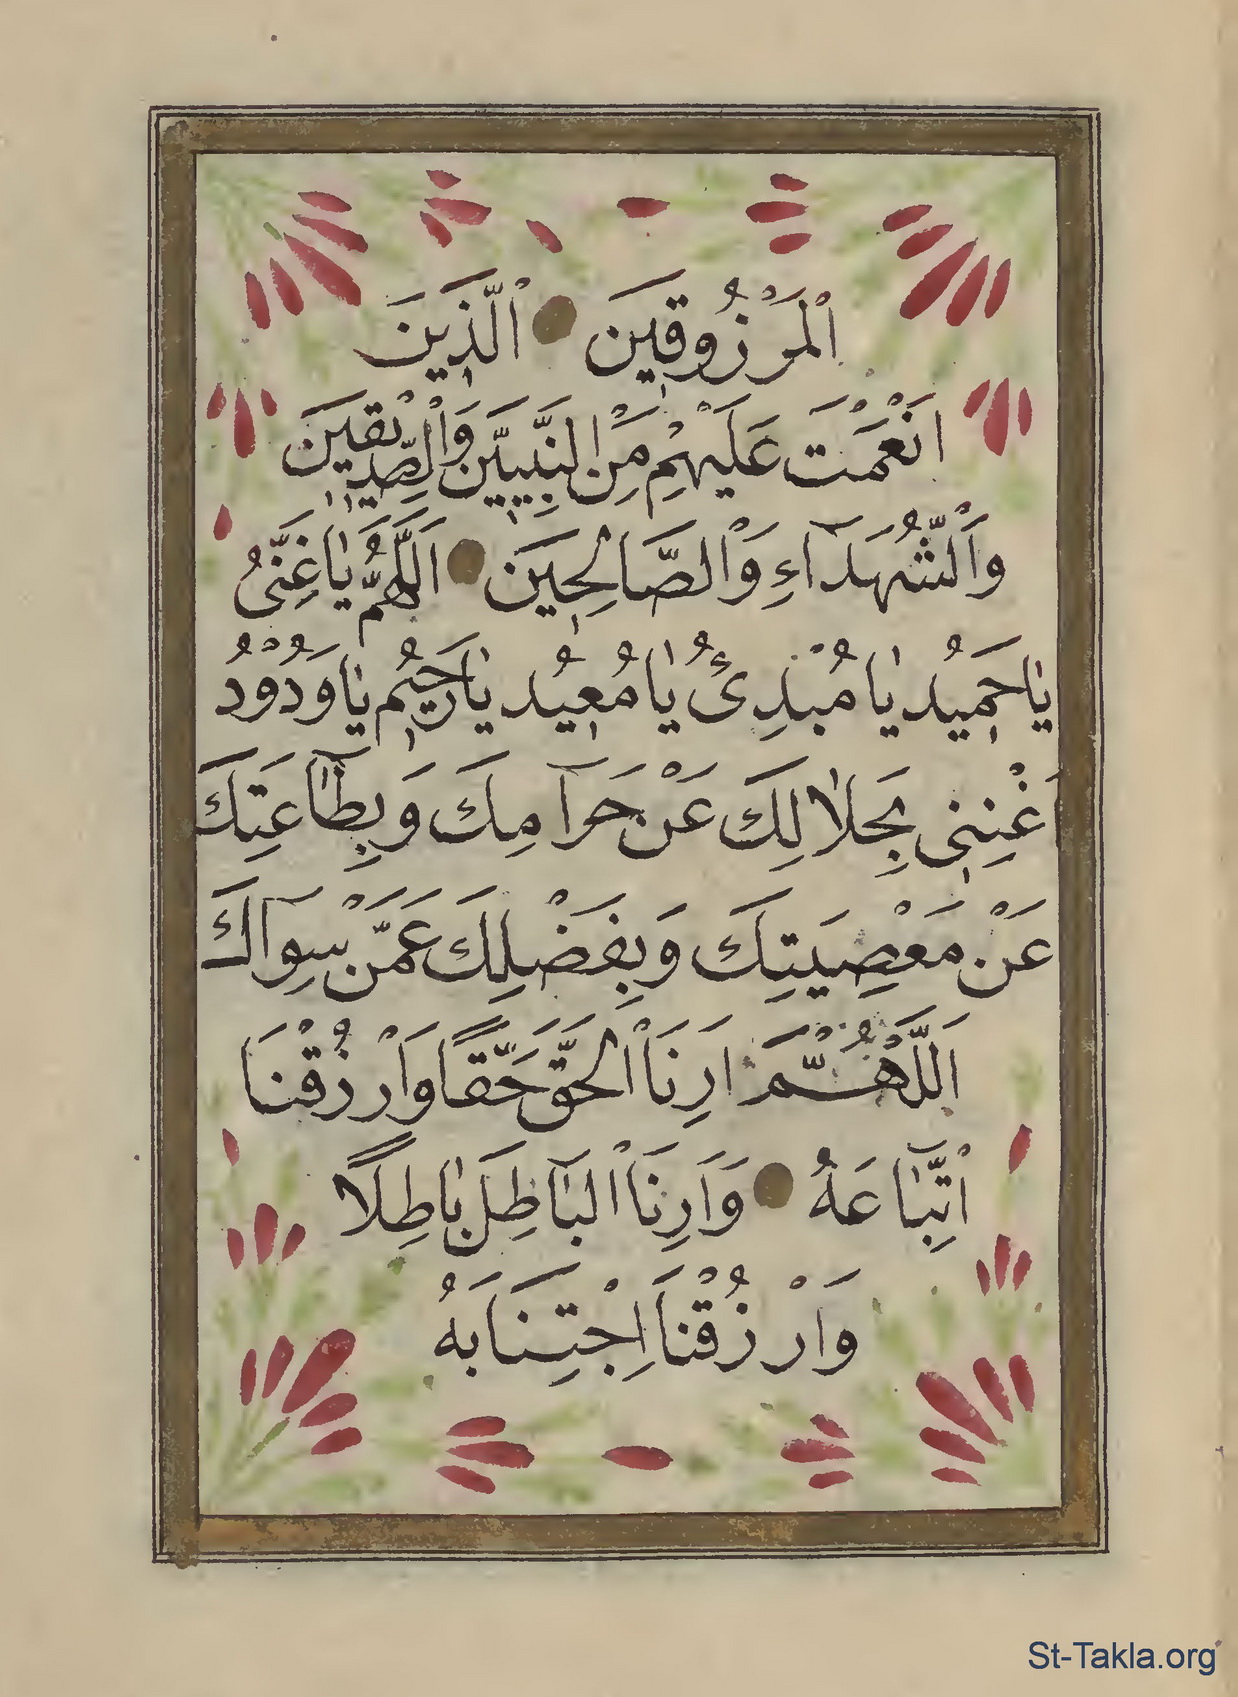 اَلْمَرْزُوقِينَ اَلَّذِينَ
اَنْعَمْتَ عَلَيْهِمْ مِنَ النَّبِيِّينَ وَالصِّدِّيقِينَ
وَالشُّهَدَآءِ وَالصَّالِحِينَ اَللَّهُمَّ يَا غَنِيُّ
يَا حَمِيدُ يَا مُبْدِئُ يَا مُعِيدُ يَا رَحِيمُ يَا وَدُودُ
اَغْنِنِي بِحَلَالِكَ عَنْ حَرَامِكَ وَبِطَاعَتِكَ
عَنْ مَعْصِيَتِكَ وَبِفَضْلِكَ عَمَّنْ سِوَاكَ
اَللَّهُمَّ اَرِنَا الْحَقَّ حَقًّا وَارْزُقْنَا
اتِّبَاعَهُ وَاَرِنَا الْبَاطِلَ بَاطِلًا
وَارْزُقْنَا اِجْتِنَابَهُ
St-Takla.org